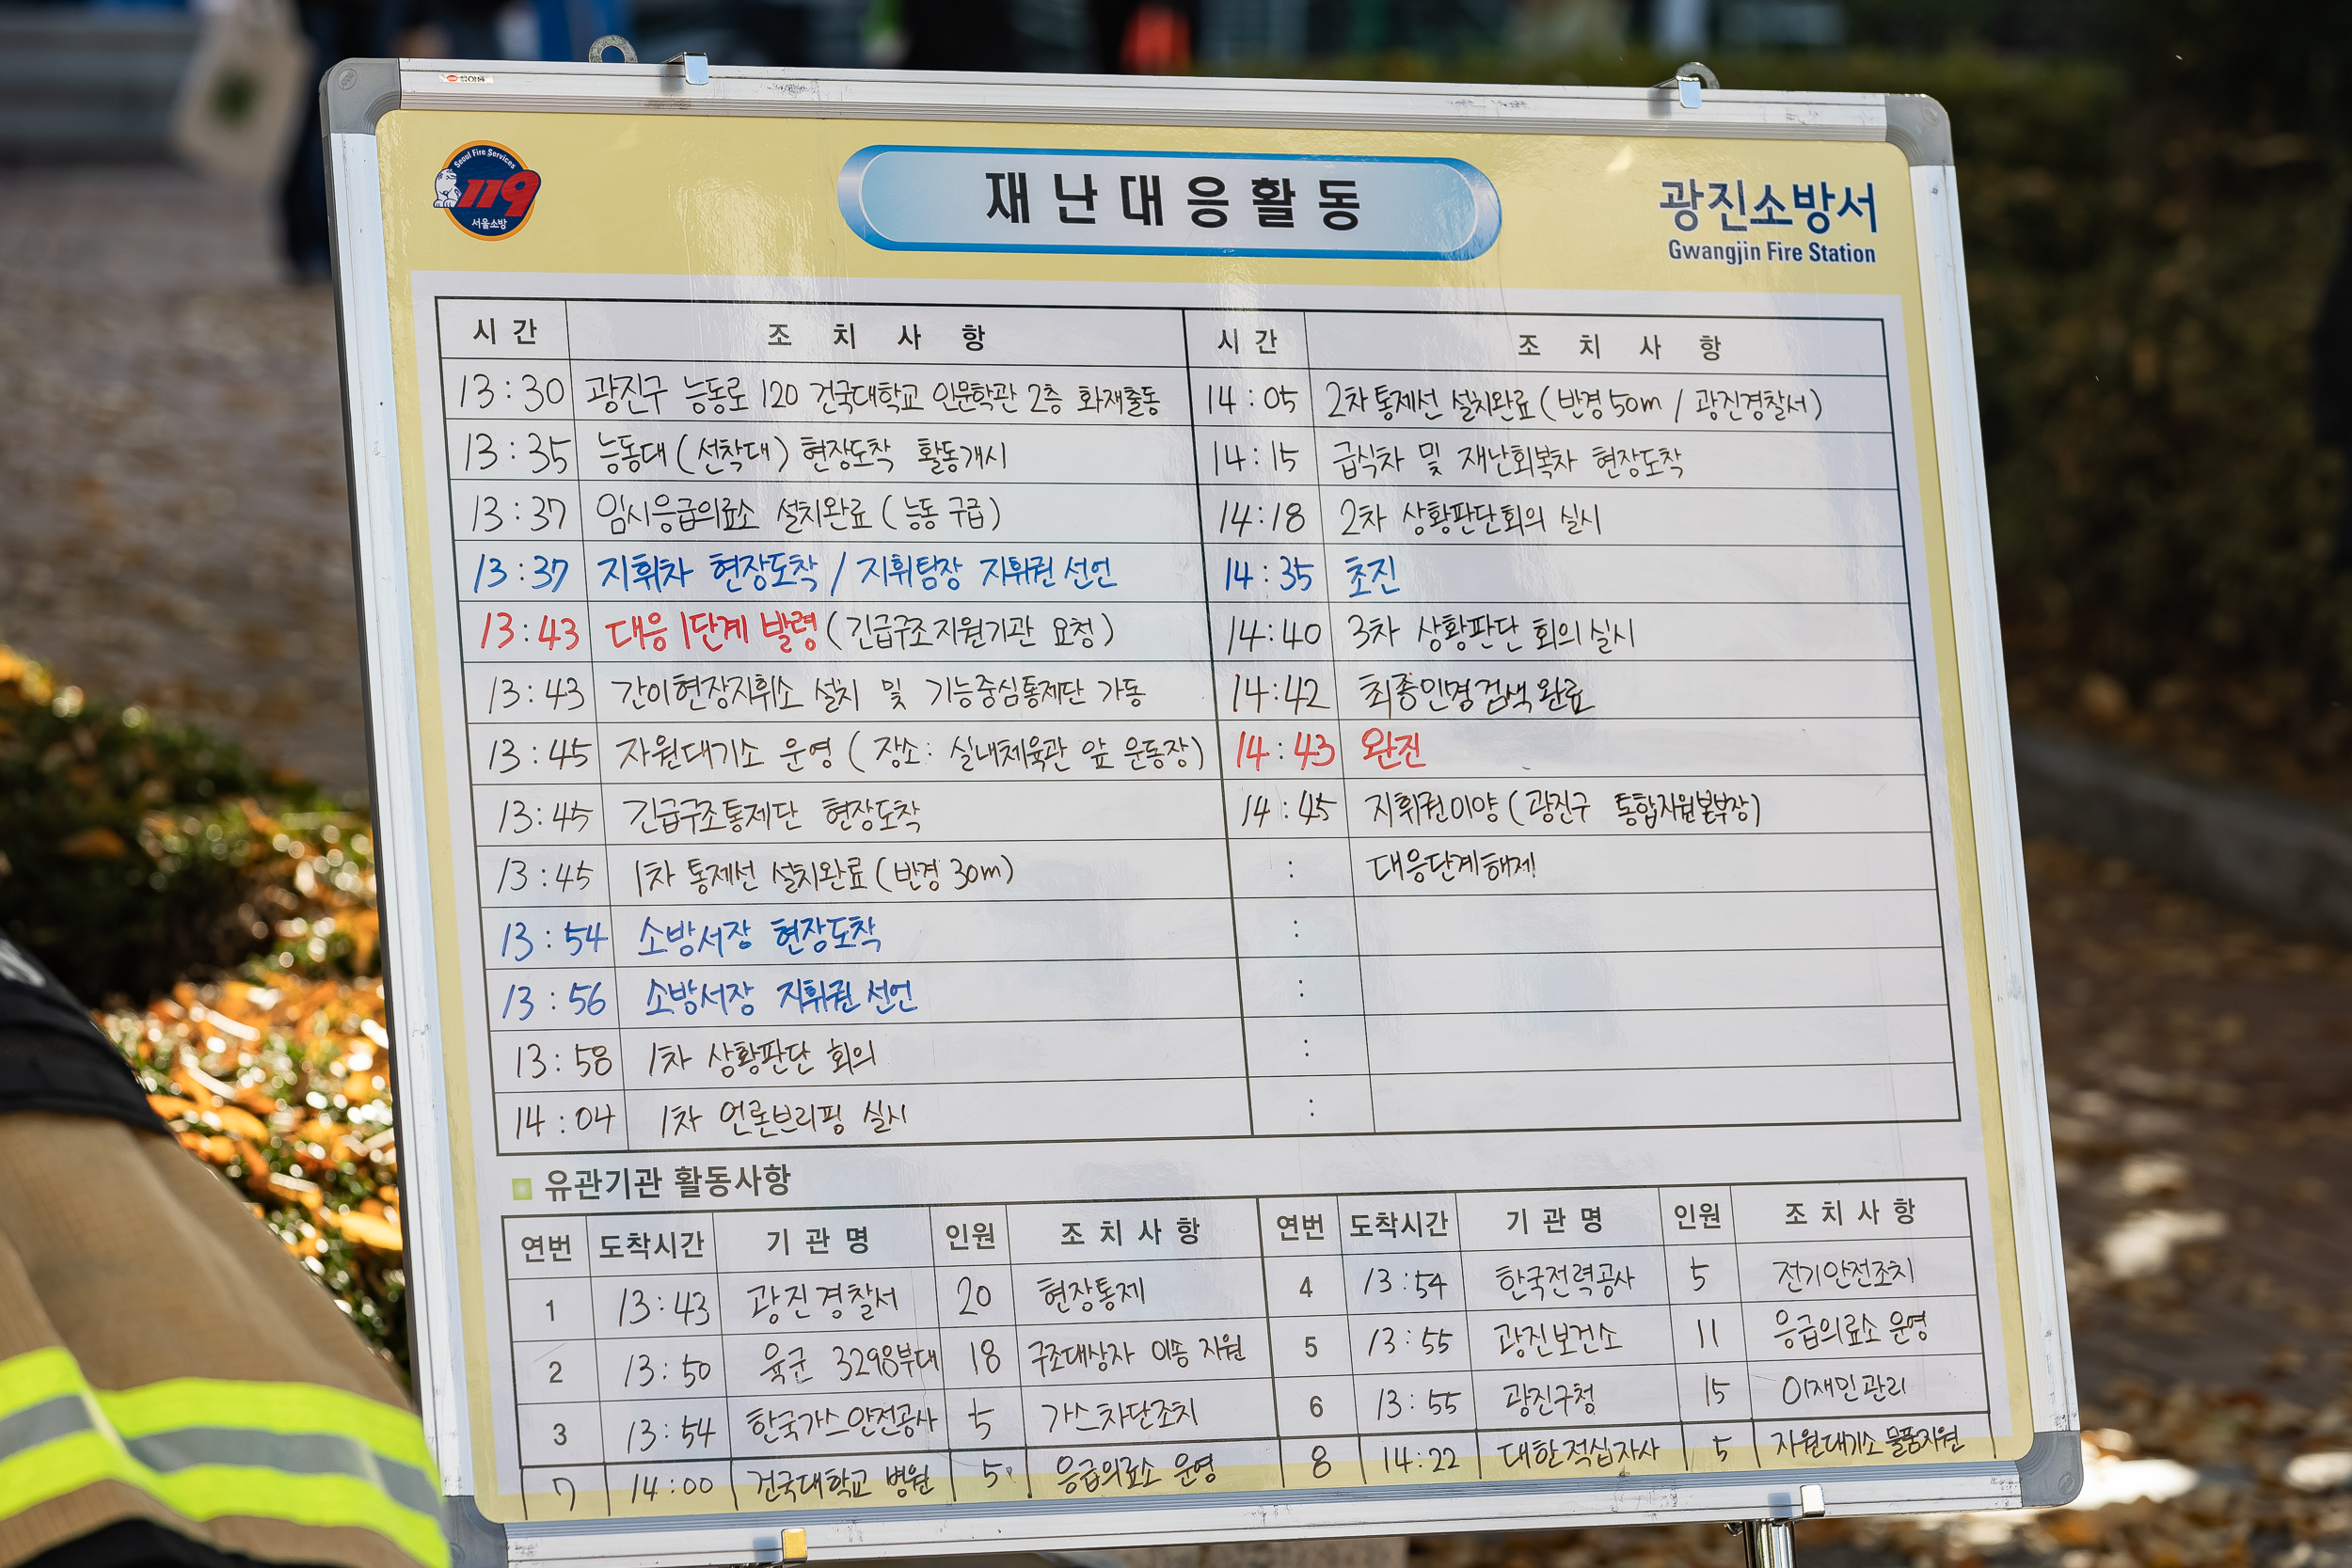 Seoul Fire Services
119
서울소방
재난대응활동
광진소방서
Gwangjin Fire Station
시 간 조 치 사 항 시 간 조 치 사 항
13:30 광진구 능동로 120 건국대학교 인문학관 2층 화재출동
13:35 능동대 (선착대) 현장도착 활동개시
13:37 임시응급의료소 설치완료 (능동 구급)
13:37 지휘차 현장도착 / 지휘팀장 지휘권 선언
13:43 대응 1단계 발령 (긴급구조지원기관 요청)
13:43 간이현장지휘소 설치 및 기능중심통제단 가동
13:45 자원대기소 운영 (장소: 실내체육관 앞 운동장)
13:45 긴급구조통제단 현장도착
13:45 1차 통제선 설치완료 (반경 30m)
13:54 소방서장 현장도착
13:56 소방서장 지휘권 선언
13:58 1차 상황판단 회의
14:04 1차 언론브리핑 실시
14:05 2차 통제선 설치완료 (반경 50m / 광진경찰서)
14:15 급식차 및 재난회복차 현장도착
14:18 2차 상황판단회의 실시
14:35 초진
14:40 3차 상황판단 회의 실시
14:42 최종인명검색 완료
14:43 완진
14:45 지휘권이양 (광진구 통합지원본부장)
: 대응단계해제
:
:
:
:
유관기관 활동사항
연번 도착시간 기관명 인원 조치사항 연번 도착시간 기관명 인원 조치사항
1 13:43 광진경찰서 20 현장통제 4 13:54 한국전력공사 5 전기안전조치
2 13:50 육군 3298부대 18 구조대상자 이송 지원 5 13:55 광진보건소 11 응급의료소 운영
3 13:54 한국가스안전공사 5 가스차단조치 6 13:55 광진구청 15 이재민관리
7 14:00 건국대학교 병원 5 응급의료소 운영 8 14:22 대한적십자사 5 자원대기소 물품지원